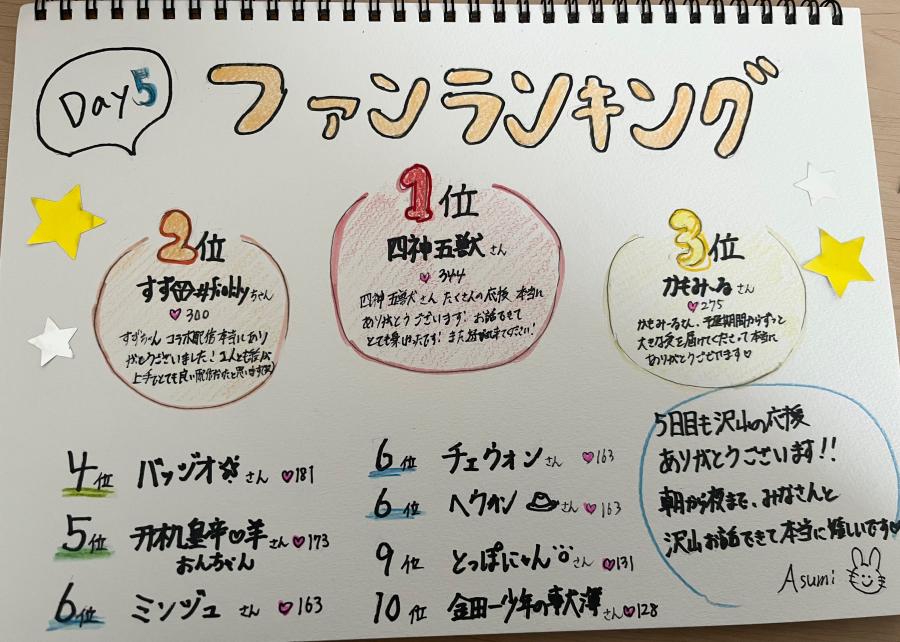 Day5
ファンランキング
1位
四神五獣さん
♡344
四神五獣さん たくさんの応援 本当に
ありがとうございます! お話もできて
とても楽しかったです! また
2位
すず ちゃん
♡300
すずちゃん コラボ配信本当にあり
がとうございました! 2人とも
上手でとても良い配信
3位
かもみーるさん
♡275
かもみーるさん、予選期間からずっと
大きな愛を届けてくださって本当に
ありがとうございます♡
4位 バッジオ さん ♡181
5位 皇帝♡羊さん ♡173
おんちゃん
6位 ミンジュ さん ♡163
6位 チェウォンさん ♡163
6位 ヘウォン さん ♡163
9位 とっぽにゃん さん ♡131
10位 金田一少年の事大薄さん ♡128
5日目も沢山の応援
ありがとうございます!!
朝から夜まで、みなさんと
沢山お話できて本当に嬉しいです♡
Asumi